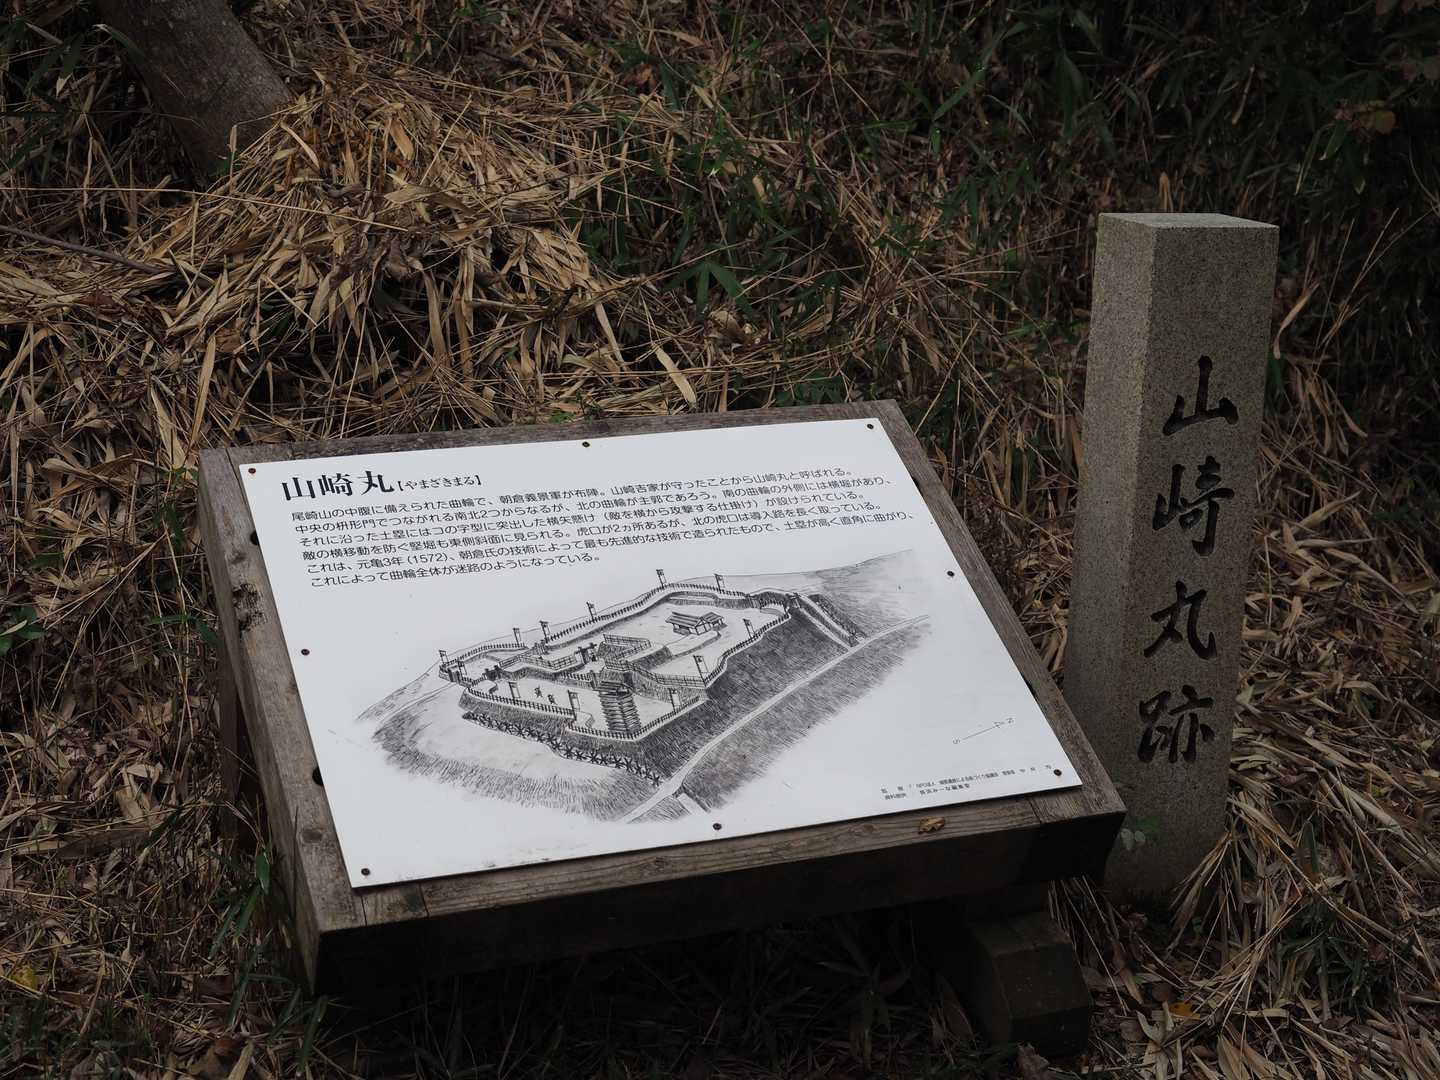 山崎丸【やまざきまる】
尾崎山の中腹に備えられた曲輪で、朝倉義景軍が布陣。山崎吉家が守ったことから山崎丸と呼ばれる。
中央の枡形門でつながれる南北2つからなるが、北の曲輪が主郭であろう。南の曲輪の外側には横堀があり、
それに沿った土塁にはコの字型に突出した横矢懸け（敵を横から攻撃する仕掛け）が設けられている。
敵の横移動を防ぐ竪堀も東側斜面に見られる。虎口が2ヵ所あるが、北の虎口は導入路を長く取っている。
これは、元亀3年（1572）、朝倉氏の技術によって最も先進的な技術で造られたもので、土塁が高く直角に曲がり、
これによって曲輪全体が迷路のようになっている。
N
S
山崎丸跡